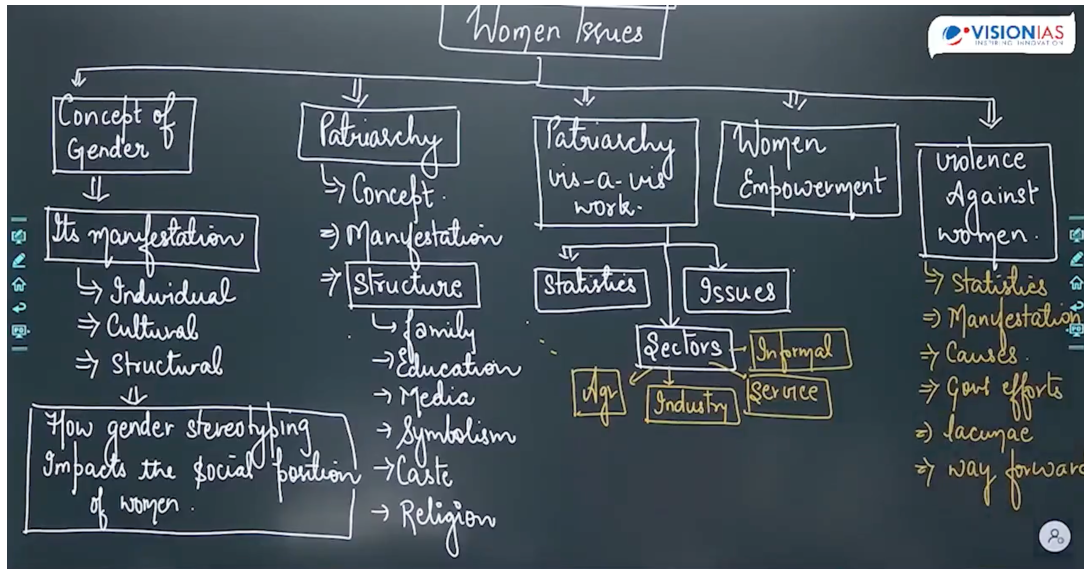 Women Issues
VISIONIAS
INSPIRING INNOVATION
Concept of
Gender
Its manifestation
Individual
Cultural
Structural
How gender stereotyping
Impacts the social position
of women.
Patriarchy
Concept.
Manifestation
Structure
family
Education
Media
Symbolism
Caste
Religion
Patriarchy
vis-a-vis
work.
Statistics
Issues
Sectors
Informal
Agr
Industry
Service
Women
Empowerment
Violence
Against
women.
Statistics
Manifestation
Causes.
Govt efforts
lacunae
way forward